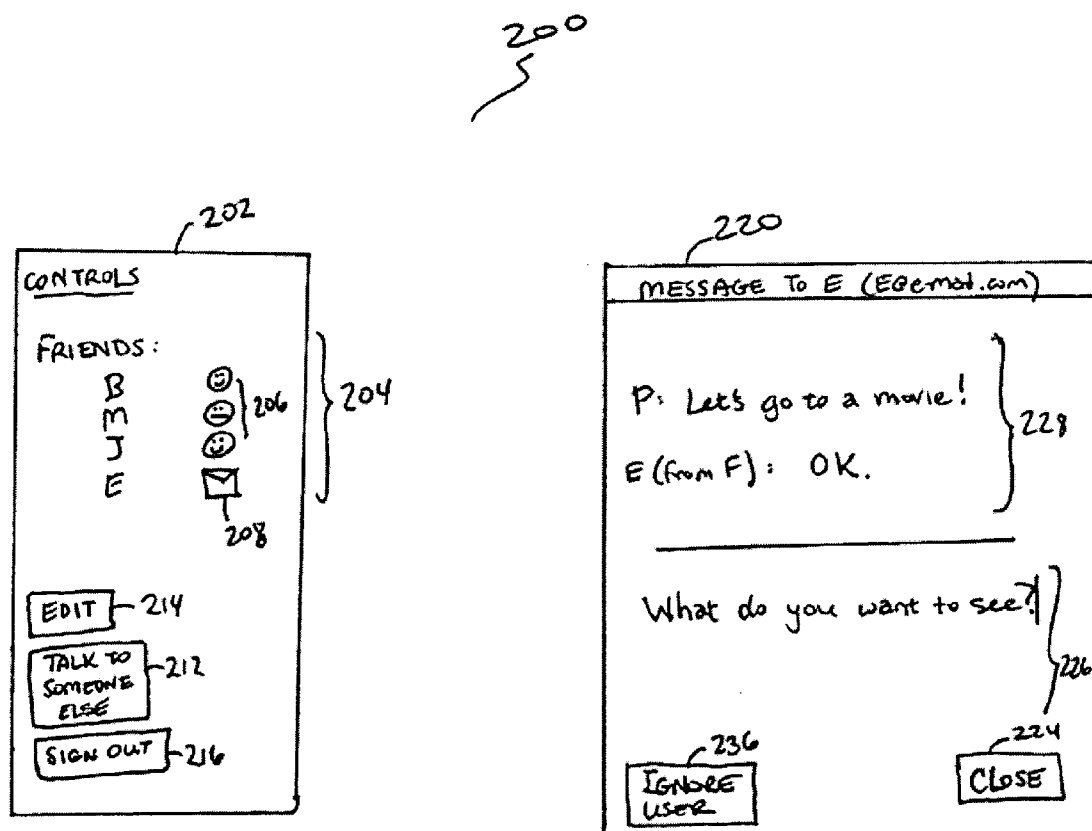 200
202
CONTROLS
FRIENDS:
B
M
J
E
206
204
208
EDIT
214
TALK TO
SOMEONE
ELSE
212
SIGN OUT
216
220
MESSAGE TO E (E@email.com)
P: Let's go to a movie!
E (from F): OK.
228
What do you want to see?
226
236
IGNORE
USER
224
CLOSE